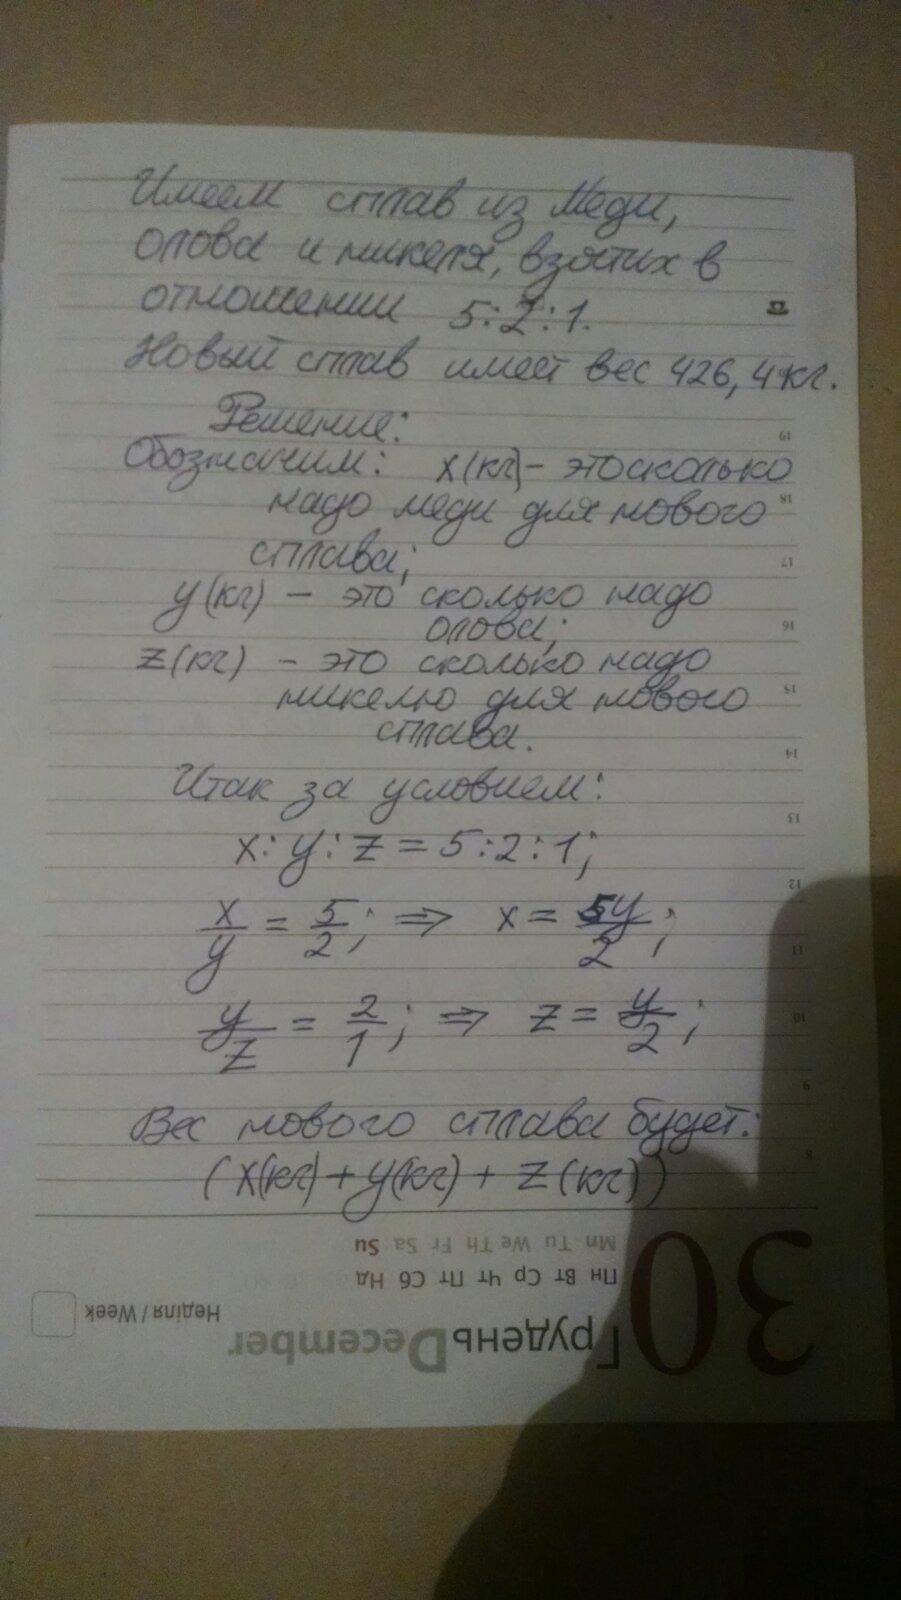 Имеем сплав из меди,
олова и никеля, взятых в
отношении 5:2:1.
Новый сплав имеет вес 426,4кг.
Решение:
Обозначим: x(кг) – это сколько
надо меди для нового
сплава;
y(кг) – это сколько надо
олова;
z(кг) – это сколько надо
никелю для нового
сплава.
Итак за условием:
x:y:z=5:2:1;
x/y = 5/2; ⇒ x = 5y/2;
y/z = 2/1; ⇒ z = y/2;
Вес нового сплава будет:
(x(кг)+y(кг)+z(кг))
19
18
17
16
15
14
13
12
11
10
9
8
30
Грудень December
Пн Вт Ср Чт Пт Сб Нд
Mn Tu We Th Fr Sa Su
Неділя / Week